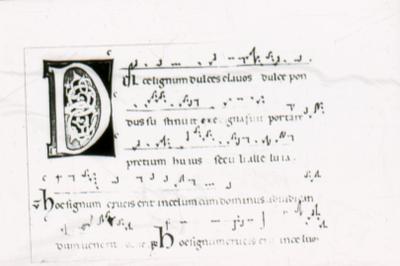 Dulcelignum dulces clauos dulce pon
dus su stinuit gna fuit portare
pretium huius secu li alle lu ia.
hocsignum crucis erit incelum cum dominus adiudican
dum uenerit hocsignum crucis erit incelum